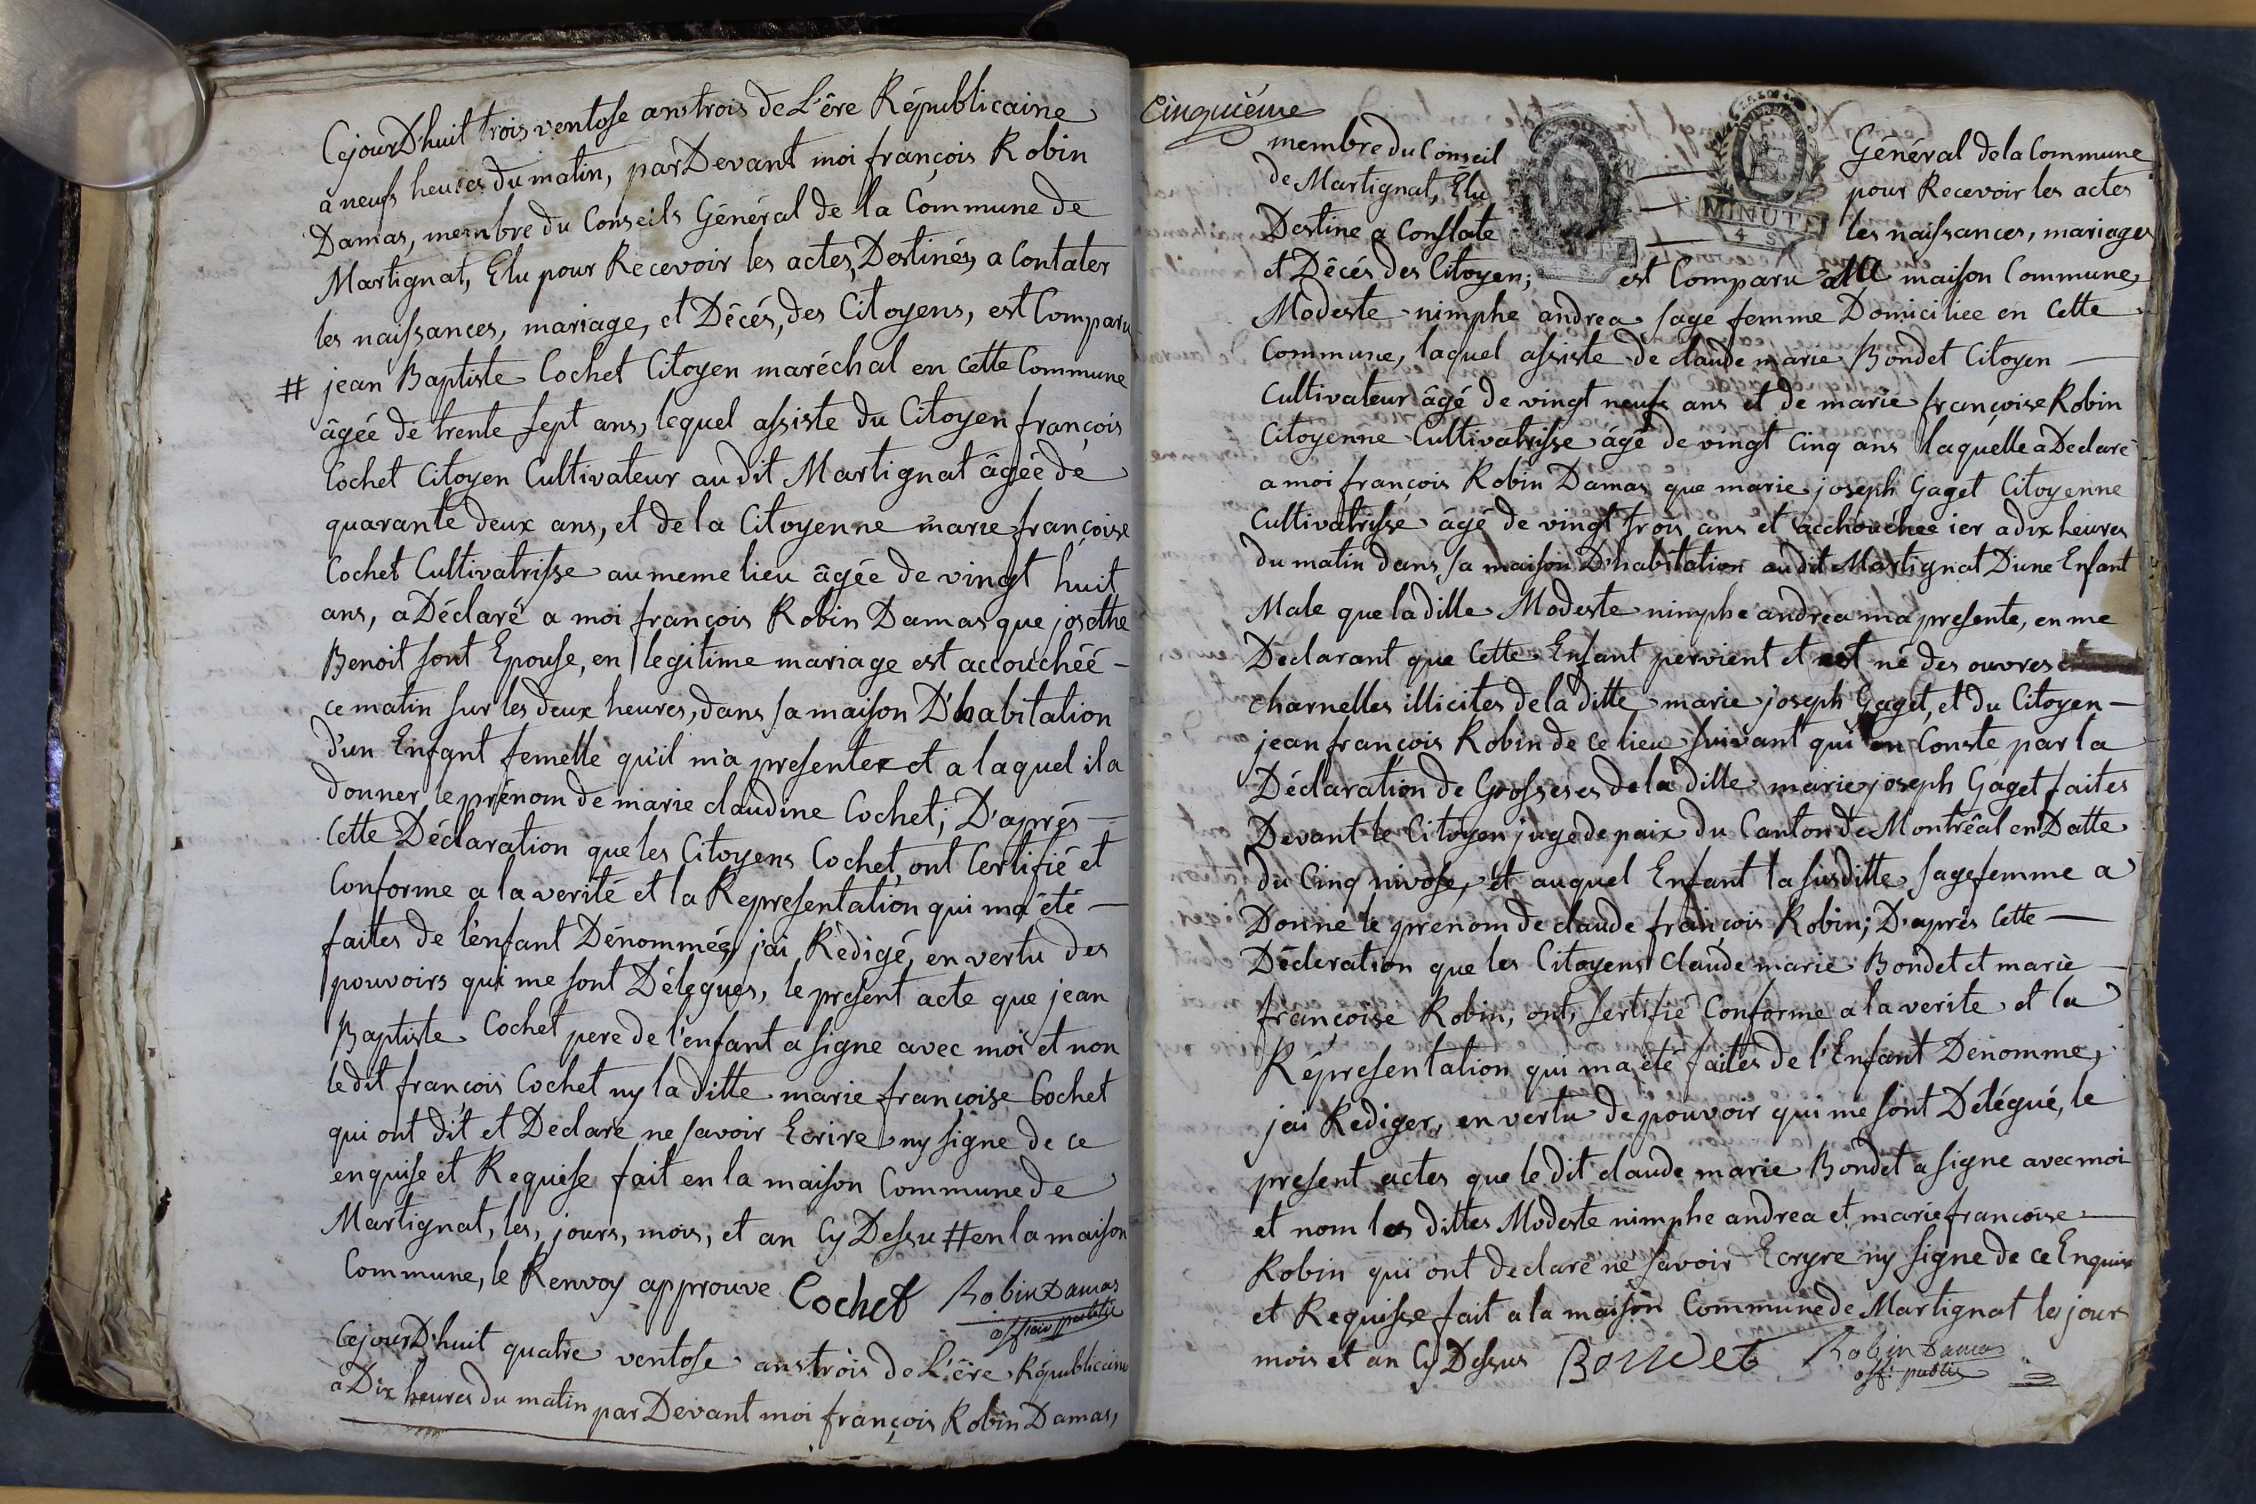 CejourD'huit trois ventose ans trois de L'êre Républicaine
a neufs heures du matin, parDevant moi françois Robin
Damas, membre du Conseils Général de la Commune de
Martignat, Elu pour Recevoir les actes Destinés a Contater
les naissances, mariage, et Décés, des Citoyens, est Comparu
# jean Baptiste Cochet Citoyen maréchal en cette Commune
âgée de trente sept ans, lequel assiste du Citoyen françois
Cochet Citoyen Cultivateur au dit Martignat âgée de
quarante deux ans, et de la Citoyenne marie françoise
Cochet Cultivatrisse au meme lieu âgée de vingt huit
ans, a Déclaré a moi françois Robin Damas que josethe
Benoit sont Epouse, en legitime mariage est accouchéé
ce matin sur les deux heures, dans sa maison D'habitation
d'un Enfant femelle qu'il m'a presenter et a laquel il a
donner le prénom de marie claudine Cochet; D'aprés
Cette Déclaration que les Citoyens Cochet, ont Certifié et
Conforme a la verité et la Representation qui ma été
faites de l'enfant Dénommée, j'ai Rédigé, en vertu des
pouvoirs qui me sont Délegués, le present acte que jean
Baptiste Cochet pere de l'enfant a signe avec moi et non
le dit françois Cochet ny la ditte marie françoise Cochet
qui ont dit et Declaré ne savoir Ecrire ny signe de ce
enquise et Requise fait en la maison Commune de
Martignat, les, jours, mois, et an Cy Dessu # en la maison
Commune, le Renvoy approuve Cochet Robin Damas
officier publique
CejourD'huit quatre ventose ans trois de L'êre Républicaine
a Dix heures du matin par Devant moi françois Robin Damas,
Cinquième
membre du Conseil Général de la Commune
de Martignat, Elu pour Recevoir les actes
Destine a Constate les naissances, mariages
et Décés des Citoyen; est Comparu a la maison Commune
MINUTE
4 S
Modeste nimphe andrea sage femme Domiciliee en Cette
Commune, laquel assiste de claude marie Bondet Citoyen
Cultivateur âgé de vingt neufs ans et de marie françoise Robin
Citoyenne Cultivatrisse âgé de vingt Cinq ans laquelle a Declaré
a moi françois Robin Damas que marie joseph Gaget Citoyenne
Cultivatrisse âgé de vingt trois ans et acchouchée ier a dix heures
du matin dans sa maison D'habitation au dit Martignat D'une Enfant
Male que la ditte Modeste nimphe andrea ma presente, en me
Declarant que Cette Enfant pervient et est né des ouvres
charnelles illicites de la ditte marie joseph Gaget, et du Citoyen
jean françois Robin de ce lieu suivant qui en Conste par la
Déclaration de Grosseses de la ditte marie joseph Gaget faites
Devant le Citoyen juge de paix du Canton de Montréal en Datte
du Cinq nivôse, et auquel Enfant la susditte sagefemme a
Donne le prenom de claude françois Robin; D'aprés Cette
Décleration que les Citoyens Claude marie Bondet et marie
françoise Robin, ont, sertifié Conforme a la verite et la
Répresentation qui ma été faites de l'Enfant Denomme,
jai Rediger, en vertu de pouvoir qui me sont Délégué, le
present actes que le dit claude marie Bondet a signe avec moi
et nom les dittes Modeste nimphe andrea et marie francoise
Robin qui ont declaré ne savoir Ecryre ny signe de ce Enquise
et Requisse fait a la maison Commune de Martignat les jour
mois et an Cy Dessus Bondet Robin Damas
off. public